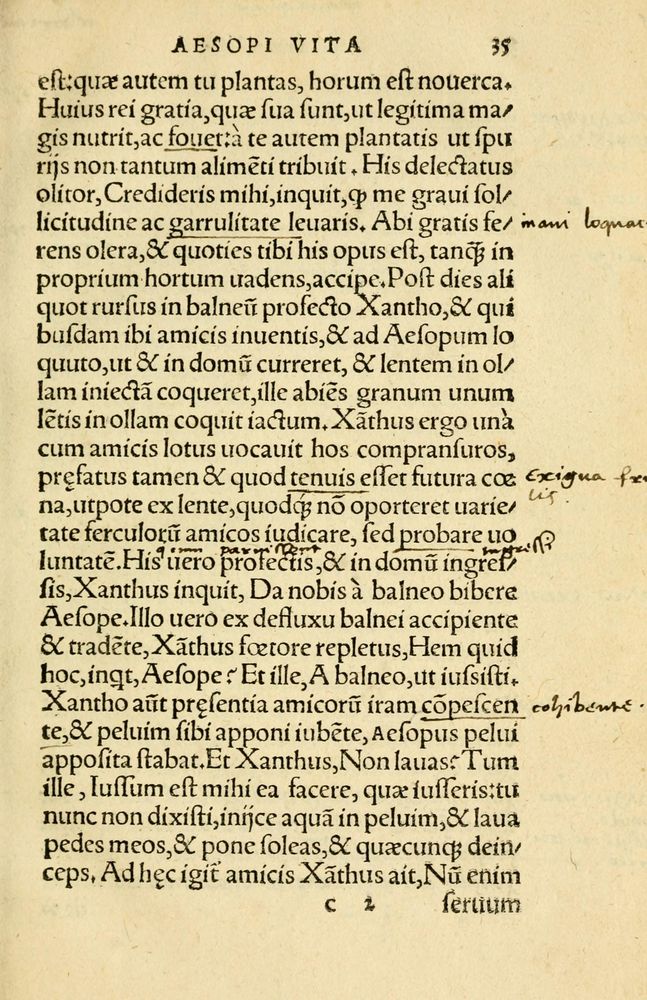 AESOPI VITA 35
est: quæ autem tu plantas, horum est nouerca.
Huius rei gratia, quæ sua sunt, ut legitima ma/
gis nutrit, ac fouet: à te autem plantatis ut spu
rijs non tantum alimẽti tribuit. His delectatus
olitor, Credideris mihi, inquit, ꝙ me graui sol/
licitudine ac garrulitate leuaris. Abi gratis fe/ inani loquac
rens olera, & quoties tibi his opus est, tanꝗ̃ in
proprium hortum uadens, accipe. Post dies ali
quot rursus in balneũ profecto Xantho, & qui
busdam ibi amicis inuentis, & ad Aesopum lo
quuto, ut & in domũ curreret, & lentem in ol/
lam iniectã coqueret, ille abiẽs granum unum
lẽtis in ollam coquit iactum. Xãthus ergo unà
cum amicis lotus uocauit hos compransuros,
pręfatus tamen & quod tenuis esset futura cœ exigua
na, utpote ex lente, quodq; nõ oporteret uarie/
tate ferculorũ amicos iudicare, sed probare uo
luntatẽ. His uero profectis, & in domũ ingres/
sis, Xanthus inquit, Da nobis à balneo bibere
Aesope. Illo uero ex defluxu balnei accipiente
& tradẽte, Xãthus fœtore repletus, Hem quid
hoc, inqt, Aesope? Et ille, A balneo, ut iussisti.
Xantho aũt pręsentia amicorũ iram cõpescen cohibente.
te, & peluim sibi apponi iubẽte, Aesopus pelui
apposita stabat. Et Xanthus, Non lauas? Tum
ille, Iussum est mihi ea facere, quæ iusseris: tu
nunc non dixisti, inijce aquã in peluim, & laua
pedes meos, & pone soleas, & quæcunq; dein/
ceps. Ad hęc igit̃ amicis Xãthus ait, Nũ enim
c 2 seruum